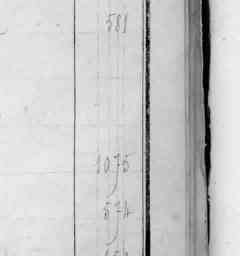 581
1075
574